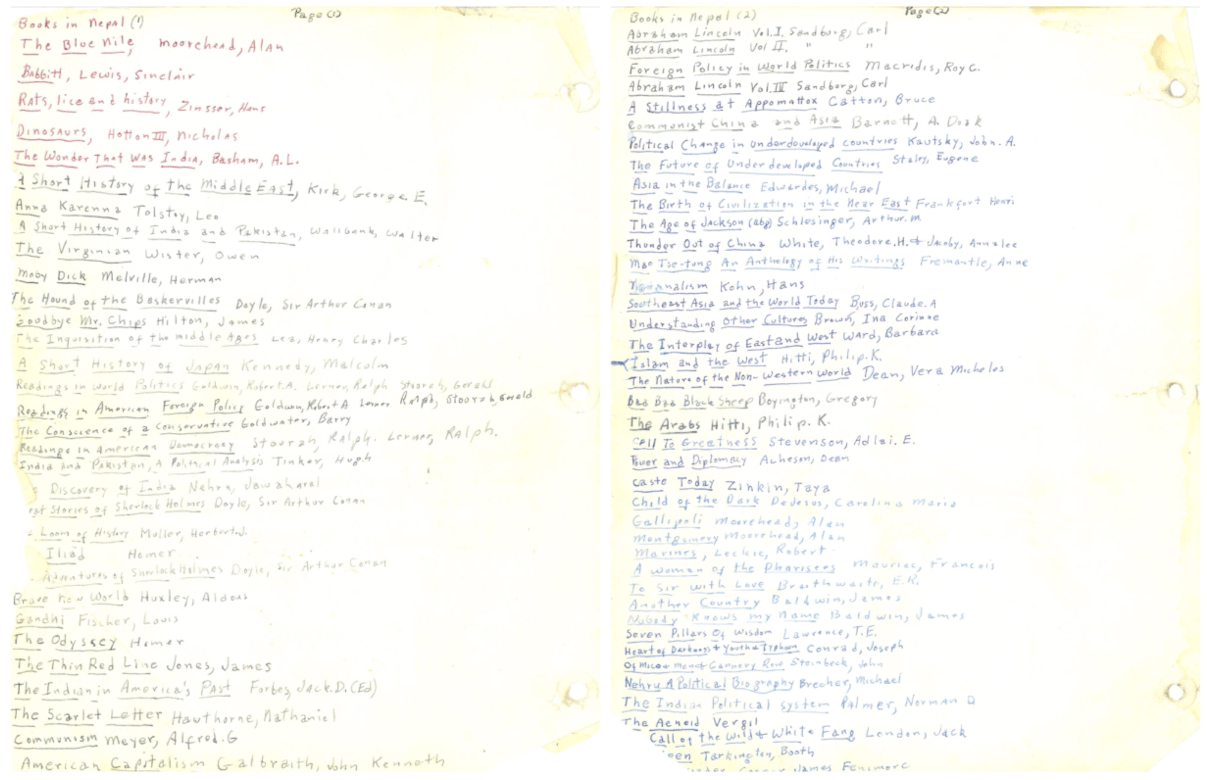 Page (1)
Books in Nepal (1)
The Blue Nile Moorehead, Alan
Babbitt, Lewis, Sinclair
Rats, lice and history, Zinsser, Hans
Dinosaurs, Hotton III, Nicholas
The Wonder That Was India, Basham, A.L.
Short History of the Middle East, Kirk, George E.
Anna Karenna Tolstoy, Leo
Short History of India and Pakistan, Wallbank, Walter
The Virginian Wister, Owen
Moby Dick Melville, Herman
The Hound of the Baskervilles Doyle, Sir Arthur Conan
Goodbye Mr. Chips Hilton, James
Inquisition of the middle Ages Lea, Henry Charles
A Short History of Japan Kennedy, Malcolm
World Politics Goldwin, Robert A.
Readings in American Foreign Policy Goldwin, Robert A Lerner Ralph, Stourzh, Gerald
The Conscience of a Conservative Goldwater, Barry
Readings in American Democracy Stourzh, Ralph. Lerner, Ralph.
India and Pakistan, A Political Analysis Tinker, Hugh
Discovery of India Nehru, Jawaharal
Stories of Sherlock Holmes Doyle, Sir Arthur Conan
Loom of History Muller, Herbert
Iliad Homer
Adventures of Sherlock Holmes Doyle, Sir Arthur Conan
New World Huxley, Aldous
Gandhi Louis
The Odyssey Homer
The Thin Red Line Jones, James
The Indian in America's Past Forbes, Jack.D. (Ed)
The Scarlet Letter Hawthorne, Nathaniel
Communism Meyer, Alfred.G
Capitalism Galbraith, John Kenneth
Page (2)
Books in Nepal (2)
Abraham Lincoln Vol. I. Sandburg, Carl
Abraham Lincoln Vol II. " "
Foreign Policy in World Politics Macridis, Roy C.
Abraham Lincoln Vol. III Sandburg, Carl
A Stillness at Appomattox Catton, Bruce
Communist China and Asia Barnett, A. Doak
Political Change in Underdeveloped countries Kautsky, John. A.
The Future of Underdeveloped Countries Staley, Eugene
Asia in the Balance Edwardes, Michael
The Birth of Civilization in the Near East Frankfort Henri
The Age of Jackson (abg) Schlesinger, Arthur. M
Thunder Out of China White, Theodore.H. & Jacoby, Annalee
Mao Tse-tung An Anthology of His Writings Fremantle, Anne
Nationalism Kohn, Hans
Southeast Asia and the World Today Buss, Claude. A
Understanding Other Cultures Brown, Ina Corinne
The Interplay of East and West Ward, Barbara
Islam and the West Hitti, Philip. K.
The Nature of the Non-Western World Dean, Vera Micheles
Baa Baa Black Sheep Boyington, Gregory
The Arabs Hitti, Philip. K.
Call To Greatness Stevenson, Adlai. E.
Power and Diplomacy Acheson, Dean
Caste Today Zinkin, Taya
Child of the Dark Dedesus, Carolina Maria
Gallipoli Moorehead, Alan
Montgomery Moorehead, Alan
Marines, Leckie, Robert
A Woman of the Pharisees Mauriac, Francois
To Sir with Love Braithwaite, E.R.
Another Country Baldwin, James
Nobody Knows my Name Baldwin, James
Seven Pillars Of Wisdom Lawrence, T.E.
Heart of Darkness + Youth + Typhoon Conrad, Joseph
Of Mice + men + Cannery Row Steinbeck, John
Nehru A Political Biography Brecher, Michael
The Indian Political System Palmer, Norman D
The Aeneid Vergil
Call of the Wild & White Fang London, Jack
Tarkington, Booth
James Fenimore